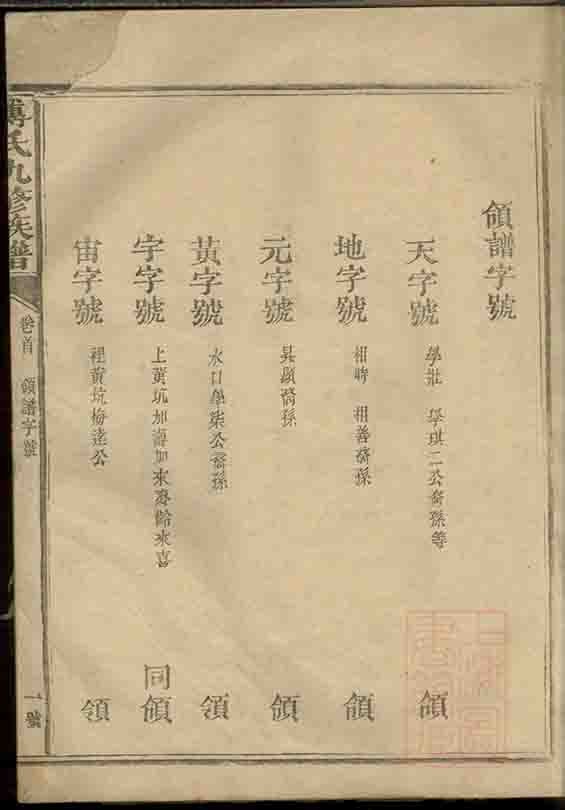 領譜字號
天字號 學壯 學琪二公裔孫等 領
地字號 相時 相善裔孫 領
元字號 昇顯裔孫 領
黃字號 水口學柒公裔孫 領
宇字號 上黃坑加海加來春齡來喜 同領
宙字號 裡黃坑梅達公 領
傅氏九修族譜
卷首 領譜字號
一號